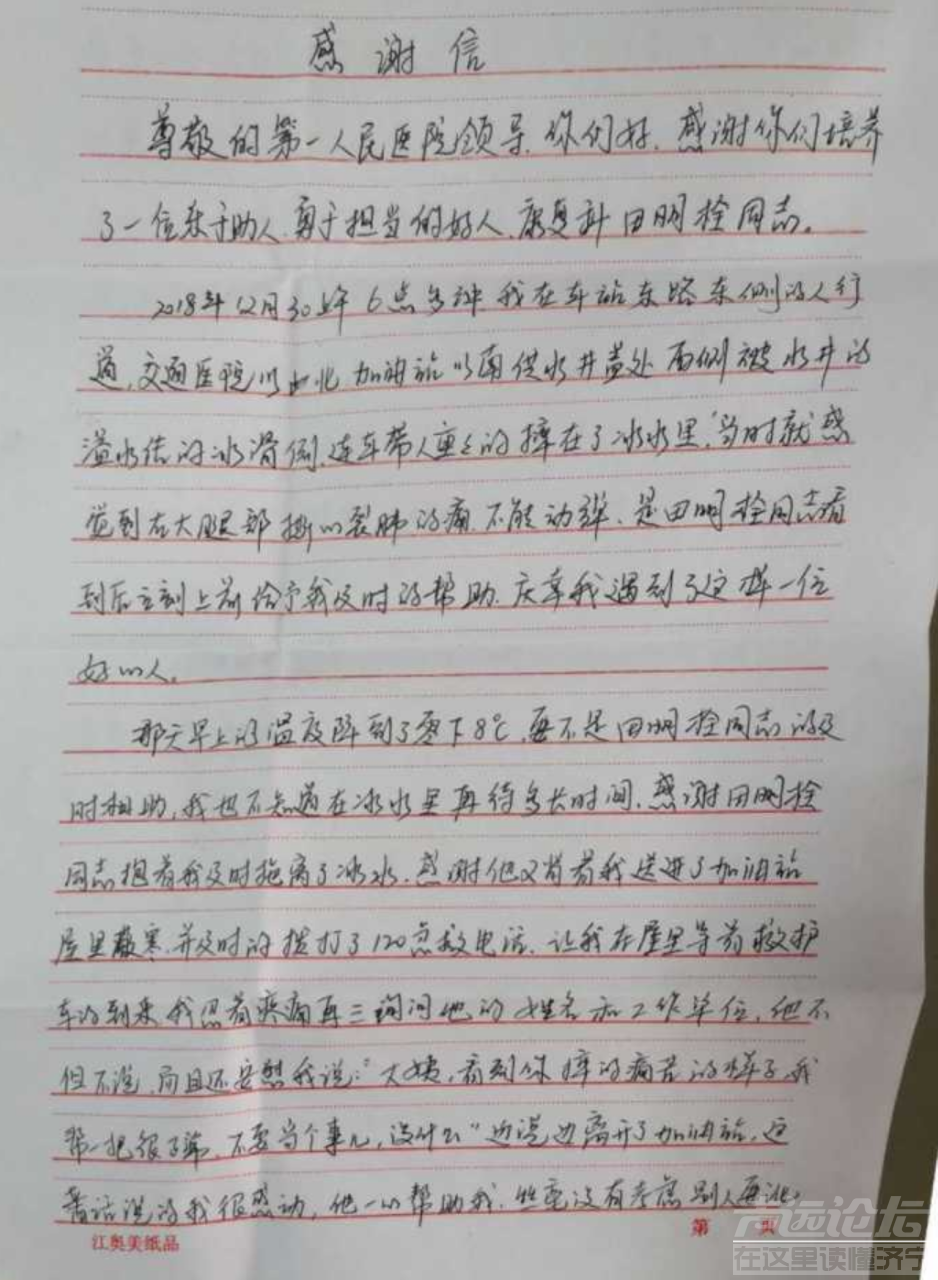 感谢信
尊敬的第一人民医院领导、你们好、感谢你们培养
了一位乐于助人、勇于担当的好人、康复科田明栓同志。
2018年12月30日早6点多钟我在车站东路东侧的人行
道,交通医院以北加油站以南供水井盖处西侧被水井的
溢水结的冰滑倒、连车带人重重的摔在了冰水里,当时就感
觉到右大腿部撕心裂肺的痛、不能动弹、是田明栓同志看
到后立刻上前给予我及时的帮助、庆幸我遇到了这样一位
好心人。
那天早上的温度降到了零下8℃,要不是田明栓同志的及
时相助,我也不知道在冰水里再待多长时间、感谢田明栓
同志抱着我及时拖离了冰水、感谢他又背着我送进了加油站
屋里避寒、并及时的拨打了120急救电话、让我在屋里等着救护
车的到来我忍着疼痛再三询问他的姓名和工作单位,他不
但不说、而且还安慰我说:“大姨,看到你摔的痛苦的样子,我
帮一把很正常、不要当个事儿,没什么”边说边离开了加油站,这
番话说的我很感动,他一心帮助我、丝毫没有考虑别人再讹
江奥美纸品
第 页
声远论坛
在这里读懂济宁